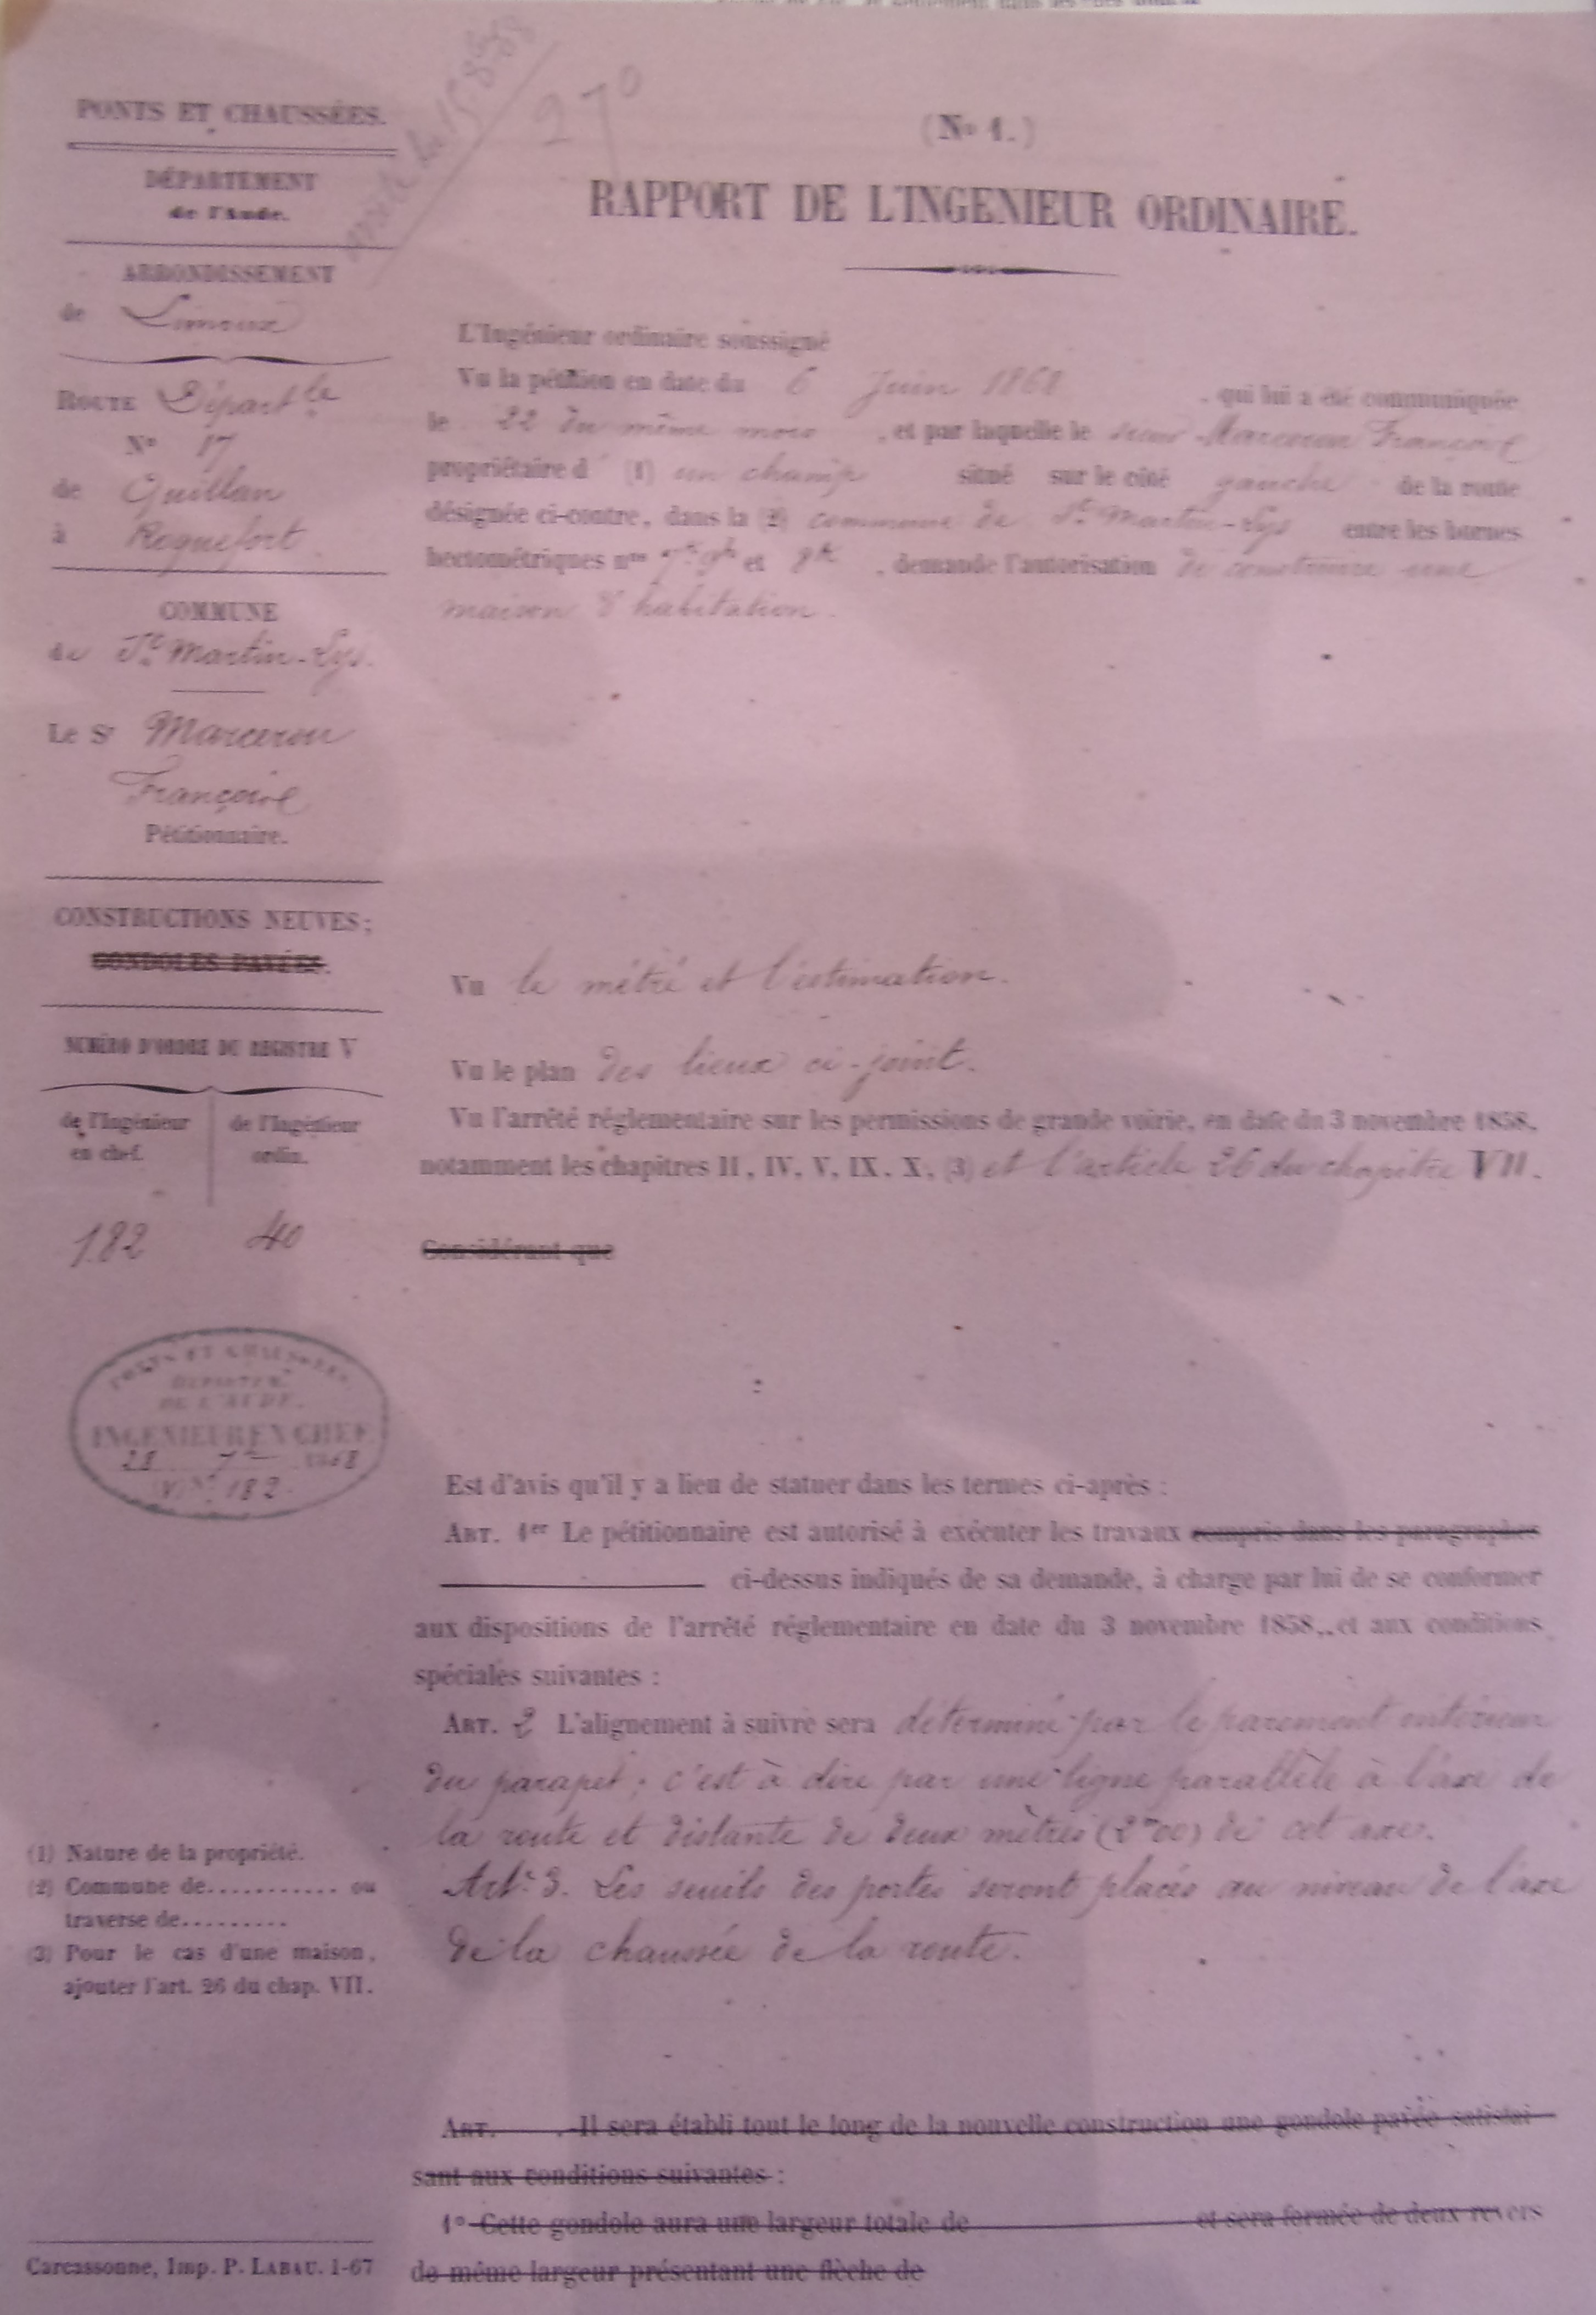 PONTS ET CHAUSSÉES.
DÉPARTEMENT
de l'Aude.
ARRONDISSEMENT
de Limoux
ROUTE Départ.le
N° 17
de Quillan
à Roquefort
COMMUNE
de St. Martin-Lys.
Le Sr Marceron
Françoise
Pétitionnaire.
CONSTRUCTIONS NEUVES;
GONDOLES PAVÉES.
NUMÉRO D'ORDRE DU REGISTRE V
de l'Ingénieur
en chef.
de l'Ingénieur
ordin.
182 40
PONTS ET CHAUSSÉES.
DÉPARTEM.
DE L'AUDE.
INGENIEUR EN CHEF
28 7bre 1868
N° 182
(1) Nature de la propriété.
(2) Commune de............ ou
traverse de.........
(3) Pour le cas d'une maison,
ajouter l'art. 26 du chap. VII.
Carcassonne, Imp. P. LABAU. 1-67
270
(No 1.)
RAPPORT DE L'INGENIEUR ORDINAIRE.
L'Ingénieur ordinaire soussigné
Vu la pétition en date du 6 Juin 1868, qui lui a été communiquée
le 22 du même mois, et par laquelle le sieur Marceron Françoise
propriétaire d' (1) un champ situé sur le côté gauche de la route
désignée ci-contre, dans la (2) commune de St. Martin-Lys entre les bornes
hectométriques nos 7k 9h et 8k, demande l'autorisation de construire une
maison d'habitation.
Vu le métré et l'estimation.
Vu le plan des lieux ci-joint.
Vu l'arrêté réglementaire sur les permissions de grande voirie, en date du 3 novembre 1858,
notamment les chapitres II, IV, V, IX, X, (3) et l'article 26 du chapitre VII.
Considérant que
Est d'avis qu'il y a lieu de statuer dans les termes ci-après :
ART. 1er Le pétitionnaire est autorisé à exécuter les travaux compris dans les paragraphes
ci-dessus indiqués de sa demande, à charge par lui de se conformer
aux dispositions de l'arrêté réglementaire en date du 3 novembre 1858, et aux conditions
spéciales suivantes :
ART. 2 L'alignement à suivre sera déterminé par le parement intérieur
du parapet; c'est à dire par une ligne parallèle à l'axe de
la route et distante de deux mètres (2m00) de cet axe.
Art. 3. Les seuils des portes seront placés au niveau de l'axe
de la chaussée de la route.
ART. . Il sera établi tout le long de la nouvelle construction une gondole pavée satisfai-
sant aux conditions suivantes :
1° Cette gondole aura une largeur totale de et sera formée de deux revers
de même largeur présentant une flèche de